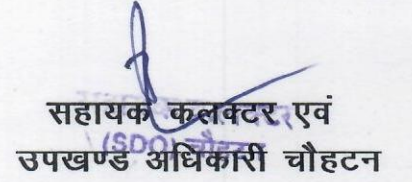 सहायक कलक्टर एवं
(SDO) चौहटन
उपखण्ड अधिकारी चौहटन